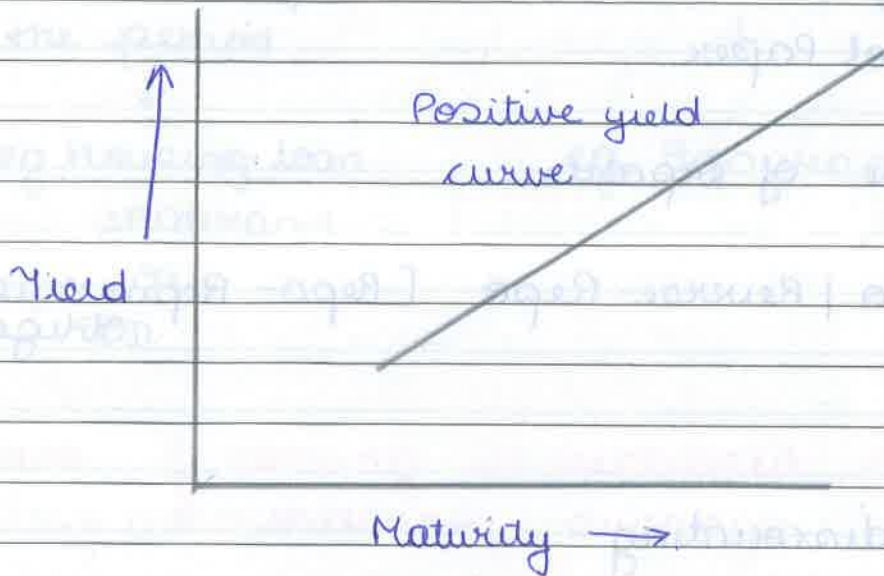 Positive yield
curve
Yield
Maturity